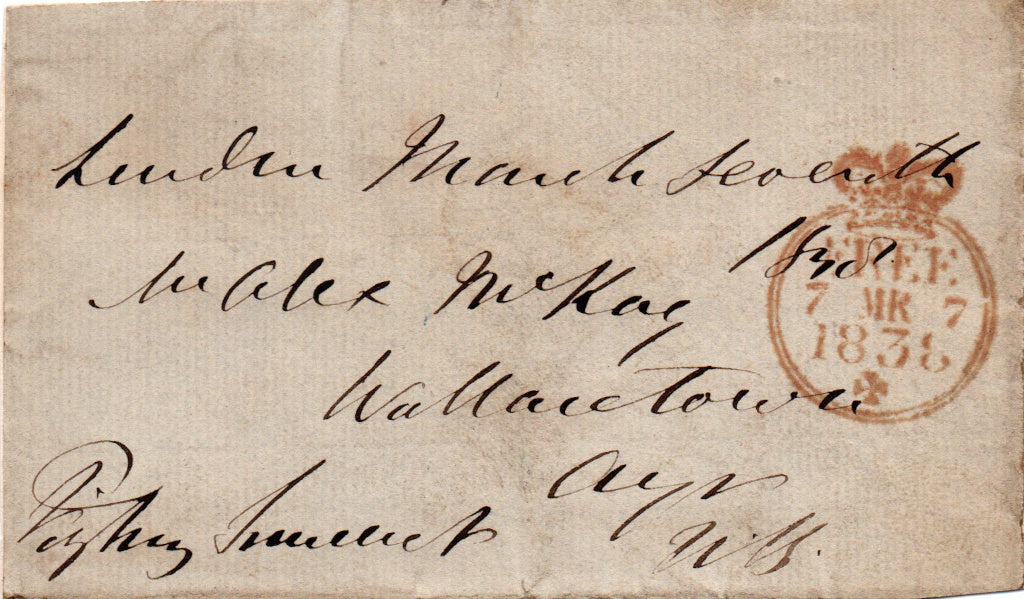 London March seventh
1838
Mr Alex McKay
Wallacetown
Ayr
N.B.
Fitzroy Somerset
FREE
7 MR 7
1838